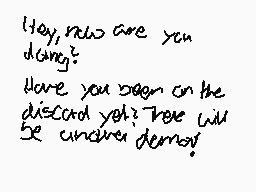 Hey, how are you
doing?
Have you been on the
discord yet? There will
be another demo!